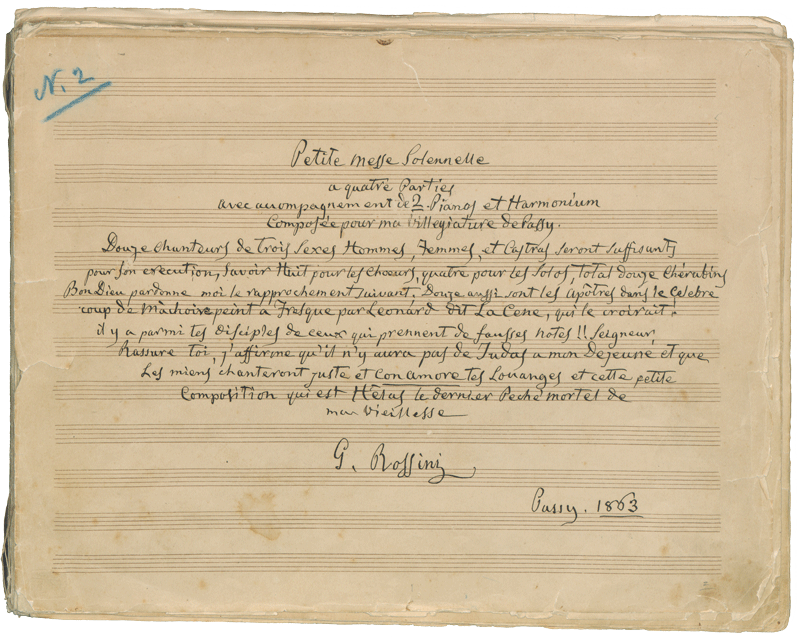 N. 2
Petite Messe Solennelle
a quatre Parties
avec accompagnement de 2. Pianos et Harmonium
Composée pour ma Villegiature de Passy.
Douze chanteurs de trois Sexes Hommes, Femmes, et Castras seront suffisants
pour son execution, Savoir Huit pour les Choeurs, quatre pour les Solos, total douze Chérubins
Bon Dieu pardonne moi le rapprochement suivant. Douze aussi sont les Apôtres dans le Celebre
coup de Mâchoire peint a Fresque par Leonard dit La Cene, qui le croirait.
il y a parmi tes disciples de ceux qui prennent de fausses notes!! Seigneur,
Rassure toi, j'affirme qu'il n'y aura pas de Judas a mon Dejeuné et que
Les miens chanteront juste et con amore tes Louanges et cette petite
Composition qui est Hélas le dernier Peché mortel de
ma Vieillesse
G. Rossini
Passy. 1863